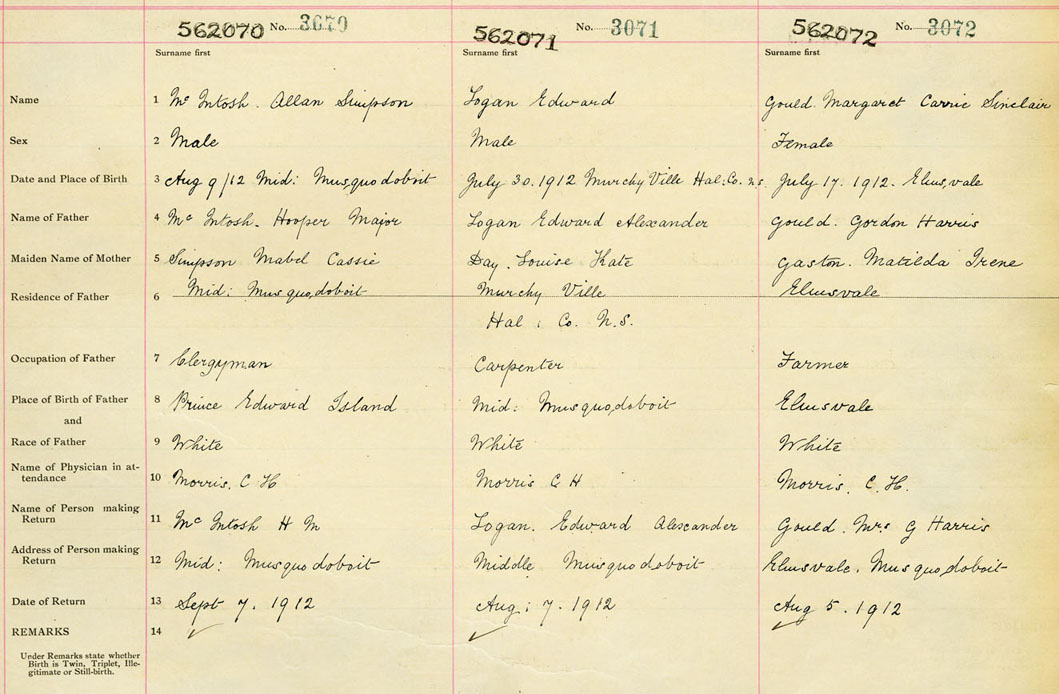 562070 No. 3070 562071 No. 3071 562072 No. 3072
Surname first Surname first Surname first
Name 1 Mc Intosh. Allan Simpson Logan Edward Gould. Margaret Carrie Sinclair
Sex 2 Male Male Female
Date and Place of Birth 3 Aug 9/12 Mid: Musquodoboit July 30. 1912 Murchy Ville Hal: Co. N.S. July 17. 1912. Elmsvale
Name of Father 4 Mc Intosh. Hooper Major Logan Edward Alexander Gould. Gordon Harris
Maiden Name of Mother 5 Simpson Mabel Cassie Day. Louise Kate Gaston. Matilda Irene
Residence of Father 6 Mid: Musquodoboit Murchy Ville Elmsvale
Hal: Co. N.S.
Occupation of Father 7 Clergyman Carpenter Farmer
Place of Birth of Father 8 Prince Edward Island Mid: Musquodoboit Elmsvale
and
Race of Father 9 White White White
Name of Physician in at-
tendance 10 Morris, C H Morris C H Morris. C. H.
Name of Person making
Return 11 Mc Intosh H M Logan. Edward Alexander Gould. Mrs G Harris
Address of Person making
Return 12 Mid: Musquodoboit Middle Musquodoboit Elmsvale. Musquodoboit
Date of Return 13 Sept 7. 1912 Aug: 7. 1912 Aug 5. 1912
REMARKS 14
Under Remarks state whether
Birth is Twin, Triplet, Ille-
gitimate or Still-birth.